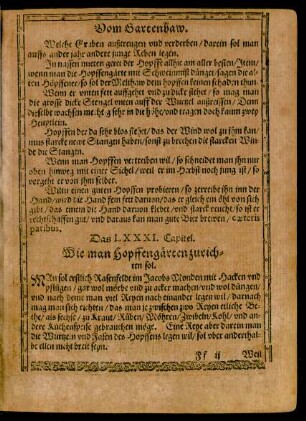 Vom Gartenbaw.
Welche Erben außtreugen vnd verderben / darein sol man
auffs ander jahr andere junge Reben legen.
In nassen meten geret der Hopffe allhie am aller besten / Item /
wenn man die Hopffengärte mit Schweinmist dünget / sagen die al-
ten Höpffener / so sol der Melthaw dem hopffen keinen schaden thun.
Wenn er vnten sett auffgehet vnd zu dicke stehet / so mag man
die grosse dicke Stengel vnten auff der Wurtzel außreissen / Denn
derselbe wachsen mechtig sehr in die höhe / vnd tragen doch kaum zwey
Heuptlein.
Hopffen der da sehr blos stehet / das der Wind wol zu jhm kan /
mus starcke newe Stangen haben / sonst zu brechen die starcken Win-
de die Stangen.
Wenn man Hopffen vertreiben wil / so schneidet man jhn nur
oben hinweg mit einer Sichel / weil er im Herbst noch jung ist / so
vergehet er von jhm selber.
Wiltu einen guten Hopffen probieren / so zerreibe jhn inn der
Hand / wird die Hand sein fett daruon / das er gleich ein öhl von sich
gibt / das einem die Hand daruon klebet / vnd starck reucht / so ist er
rechtschaffen gut / vnd daraus kan man gute Bier brewen / cæteris
paribus.
Das LXXXI. Capitel.
Wie man Hopffengärten zurich-
ten sol.
MAn sol erstlich Rasenfeldt im Jacobs Monden mit Hacken vnd
pflügen / gar wol mörbe vnd zu acker machen / vnd wol düngen /
vnd nach deme man viel Reyen nach einander legen wil / darnach
mag man sich richten / das man je zwischen zwo Reyen etliche Bethe /
als sechse / zu Kraut / Rüben / Möhren / Zwibeln / Kohl / vnd an-
dere Küchenspeise gebrauchen möge. Eine Reye aber darein man
die Wurtzeln vnd Fasen des Hopffens legen wil / sol vber anderthal-
be ellen nicht breit seyn.
Ff ij Weil